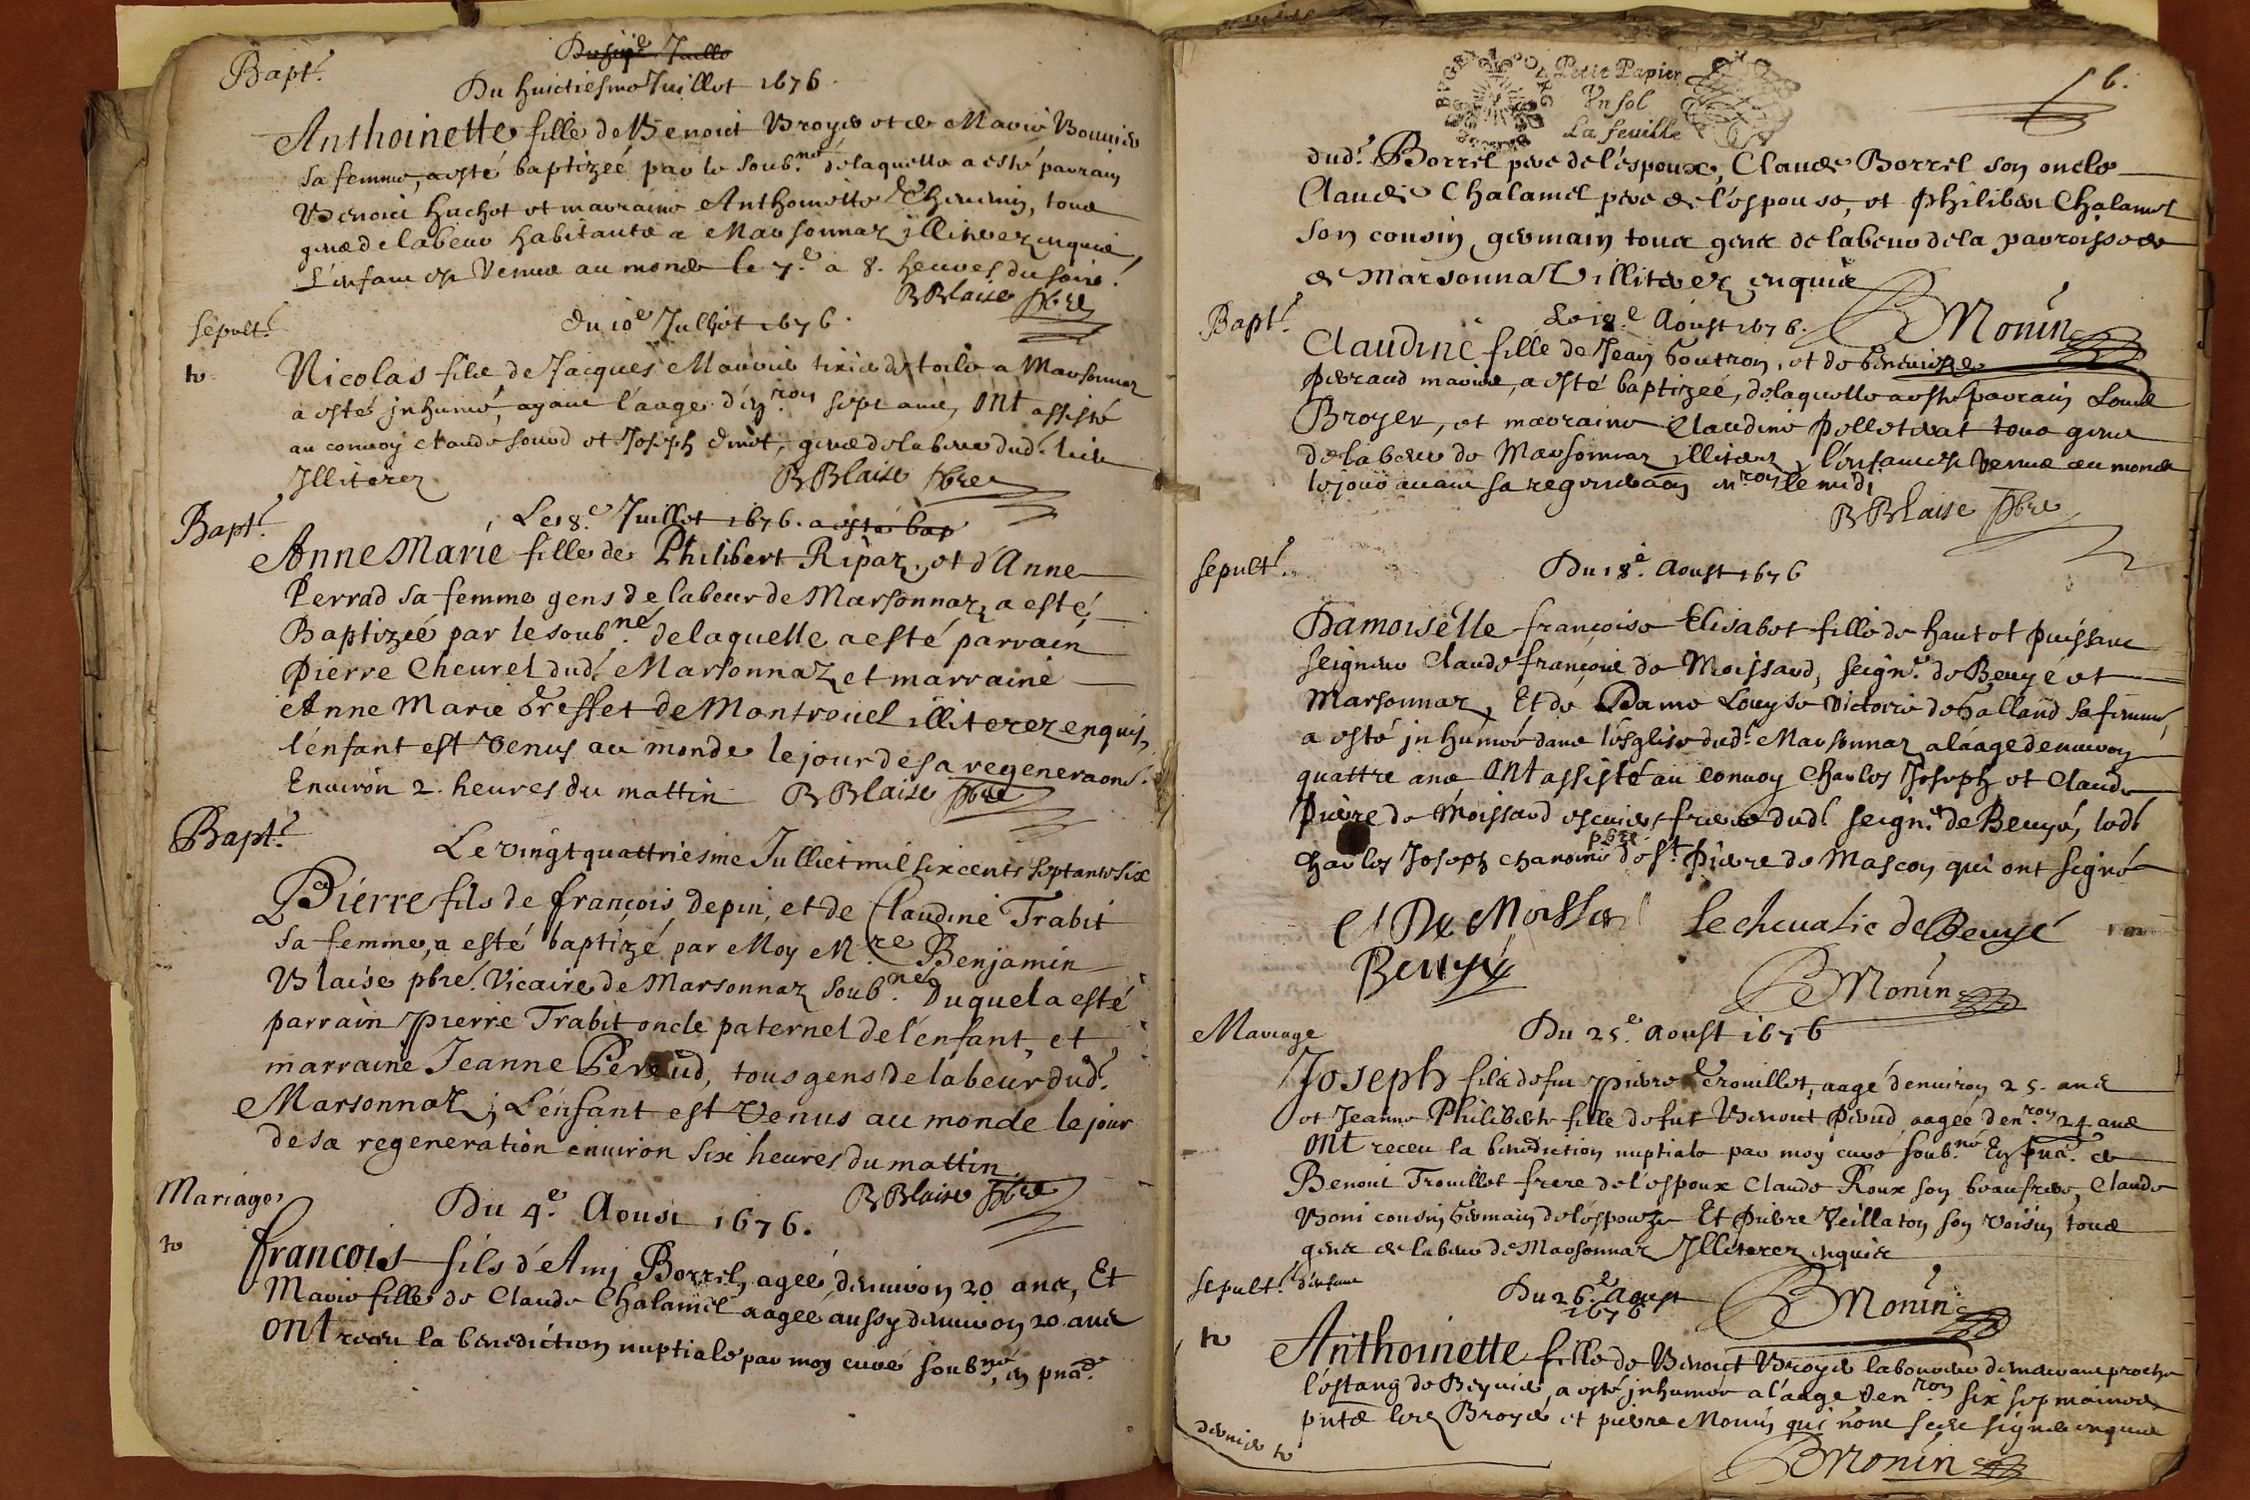 Bapt.
Du huictiesme Juillet 1676.
Anthoinette fille de Benoict Broyer et de Marie Bouvier
sa femme, a esté baptizeé par le soub.né de laquelle a esté parrain
Benoict Huchet et marraine Anthoinette Thevenin, tous
gens de labeur habitants a Marsonnaz illiterez enquis,
L'enfant est Venue au monde le 7.e a 8. heures du soire.
BBlaise pbre
sepult.
du 10e Julliet 1676.
to
Nicolas fils de Jacques tixier de toile a Marsonnaz
a esté inhumé, ayant l'aage d'en.ron sept ans, ont assisté
au convoy Claude et Joseph gens de labeur dud. lieu
Illiterez
BBlaise pbre
Bapt.
Le 18.e Juillet 1676. a esté bap
Anne Marie fille de Philibert Ripaz, et d'Anne
Perrad sa femme gens de labeur de Marsonnaz, a esté
Baptizeé par le soub.né de laquelle a esté parrain
Pierre Cheurel dud. Marsonnaz et marraine
Anne Marie Breffet de Montreuel illiterez enquis,
l'enfant est venus au monde le jour de sa regeneraons.
Environ 2. heures du mattin
BBlaise pbre
Bapt.
Le vingt quattriesme Julliet mil six cents septante six
Pierre fils de françois depin, et de Claudine Trabit
sa femme, a esté baptizé par Moy M.re Benjamin
Blaise pbre. Vicaire de Marsonnaz soub.né Duquel a esté
parrain Pierre Trabit oncle paternel de l'enfant, et
marraine Jeanne tous gens de labeur dud.
Marsonnaz, L'enfant est Venus au monde le jour
de sa regeneration environ six heures du mattin.
BBlaise pbre
Mariage
Du 4.e Aoust 1676.
to
francois fils d'Ami Borrel, ageé d'environ 20 ans, Et
Marie fille de Claude Chalamel aagee aussy d'environ 20 ans
ont receu la benediction nuptiale par moy curé soub.né, en pnce.
Petit Papier
Un sol
La feuille
6.
dud. Borrel pere de l'espoux, Claude Borrel son oncle
Claude Chalamel pere de l'espouse, et Philibert Chalamel
son cousin germain tous gens de labeur de la parroisse de
de Marsonnaz illiterez enquis
BMonin
Bapt.
Le 18.e Aoust 1676.
Claudine fille de Jean Goutron, et de
Perraud mariés, a esté baptizeé, de laquelle a esté parrain Louis
Broyer, et marraine Claudine Pelletrat tous gens
de labeur de Marsonnaz illiterez, l'enfant est Venue au monde
le jour avant sa regeneraon en.ron le midi
BBlaise pbre
sepult.
Du 18.e Aoust 1676
Damoiselle françoise Elisabet fille de haut et puissant
seigneur Claude françois de Moissard, seign.r de Beuye et
Marsonnaz, Et de Dame Louyse Victoire de Galland sa femme,
a esté inhumeé dans l'esglise dud. Marsonnaz a l'aage d'environ
quattre ans ont assisté au convoy Charles Joseph et Claude
Pierre de Moissard escuiers freres dud. seign.r de Beuye, led.
pbre
Charles Joseph chanoine de S.t Pierre de Mascon, qui ont signé
Le chevalie de Beuyé
Beuyé
BMonin
Mariage
Du 25.e Aoust 1676
Joseph fils de fut Pierre Trouillet, aagé d'environ 25. ans
et Jeanne Philiberte fille de fut Benoict aageé d'en.ron 24 ans
ont receu la benediction nuptiale par moy curé soub.né En pnce. de
Benoict Trouillet frere de l'espoux Claude Roux son beaufrere, Claude
Boni cousin Germain de l'espouze Et Pierre Veillaton son voisin tous
gens de labeur de Marsonnaz Illiterez enquis
sepult. d'enfant
Du 26.e Aoust
1676
BMonin
to
Anthoinette fille de Benoict Broyer laboureur demeurant proche
l'estang de a esté inhumeé a l'aage d'en.ron six sepmaines
pnts Broyer et pierre Monin qui n'ont sceu signer enquis
dernier to
BMonin